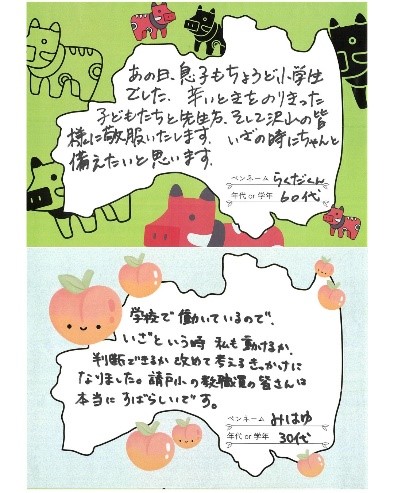 あの日、息子もちょうど小学生
でした。辛いときをのりきった
子どもたちと先生方、そして沢山の皆
様に敬服いたします。いざの時にちゃんと
備えたいと思います。
ペンネーム らくだくん
年代 or 学年 60代
学校で働いているので、
いざという時 私も動けるか、
判断できるか改めて考えるきっかけに
なりました。請戸小の教職員の皆さんは
本当にすばらしいです。
ペンネーム みはゆ
年代 or 学年 30代